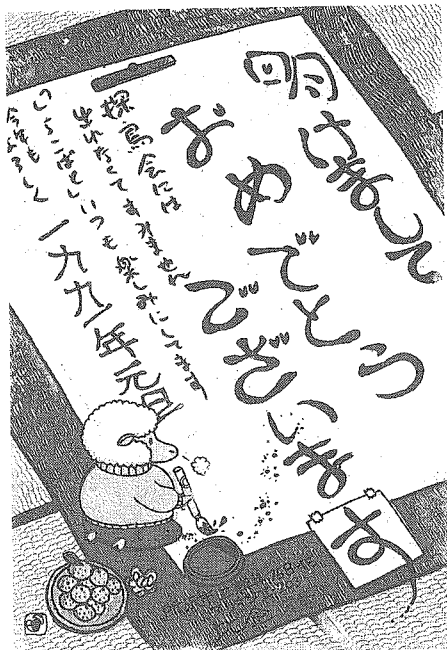 明けまして
おめでとう
ございます
探鳥会には
出れなくてすみません
しらこばといつも楽しみにしてます
今年も
よろしく
一九九一年元旦